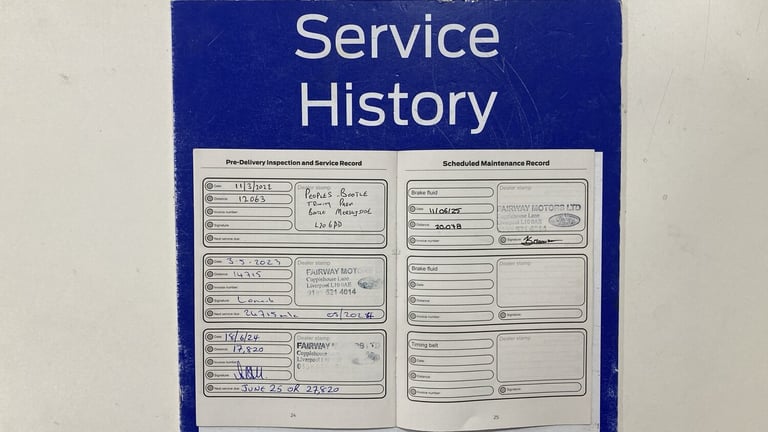 Service
History
Pre-Delivery Inspection and Service Record
Date 11/3/2022
Distance 12063
Invoice number
Signature
Next service due
Dealer stamp
PEOPLES BOOTLE
TRINITY PARK
BOOTLE MERSEYSIDE
L20 6PD
Date 3-5-2023
Distance 14715
Invoice number
Signature
Next service due 24715 mls 05/2024
Dealer stamp
FAIRWAY MOT
Coppishouse Lane
Liverpool L10 0AE
521 4614
Date 18/6/24
Distance 17,820
Invoice number
Signature
Next service due JUNE 25 OR 27,820
Dealer stamp
FAIRWAY
24
Scheduled Maintenance Record
Brake fluid
Date 11/06/25
Distance 20038
Invoice number
Dealer stamp
FAIRWAY MOTORS LTD
Coppishouse Lane
Liverpool L10 0AE
Signature
Brake fluid
Date
Distance
Invoice number
Dealer stamp
Signature
Timing belt
Date
Distance
Invoice number
Dealer stamp
Signature
25